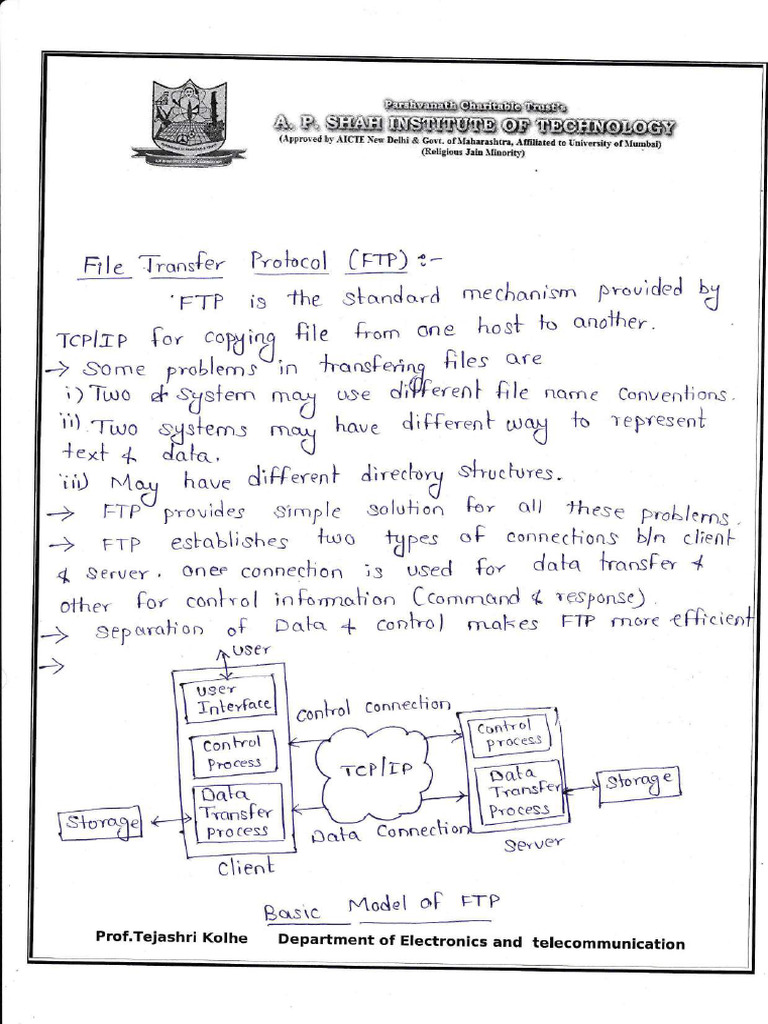 Parshvanath Charitable Trust's
A. P. SHAH INSTITUTE OF TECHNOLOGY
(Approved by AICTE New Delhi & Govt. of Maharashtra, Affiliated to University of Mumbai)
(Religious Jain Minority)
File Transfer Protocol (FTP) :-
FTP is the standard mechanism provided by
TCP/IP for copying file from one host to another.
→ Some problems in transfering files are
i) Two system may use different file name conventions.
ii) Two systems may have different way to represent
text & data.
iii) May have different directory structures.
→ FTP provides simple solution for all these problems.
→ FTP establishes two types of connections b/n client
& server. one connection is used for data transfer &
other for control information (command & response)
→ separation of Data & control makes FTP more efficient
→
user
User
Interface
Control
Process
Data
Transfer
process
Storage
Client
Control connection
TCP/IP
Data Connection
Control
process
Data
Transfer
Process
Storage
Server
Basic Model of FTP
Prof.Tejashri Kolhe Department of Electronics and telecommunication